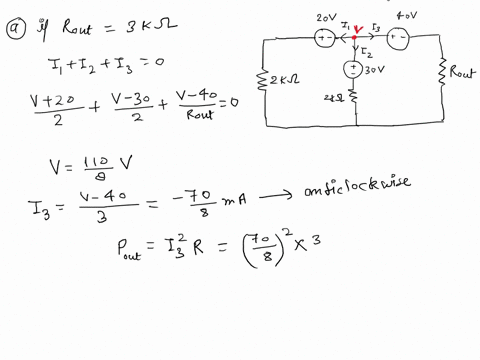 (a) if Rout = 3 KΩ
I₁ + I₂ + I₃ = 0
V+20/2 + V-30/2 + V-40/Rout = 0
V = 110/8 V
I₃ = V-40/3 = -70/8 mA → anticlockwise
Pout = I₃² R = (70/8)² × 3
20V I₁ V I₃ 40V
+ - + -
I₂
2KΩ + - 30V Rout
2KΩ